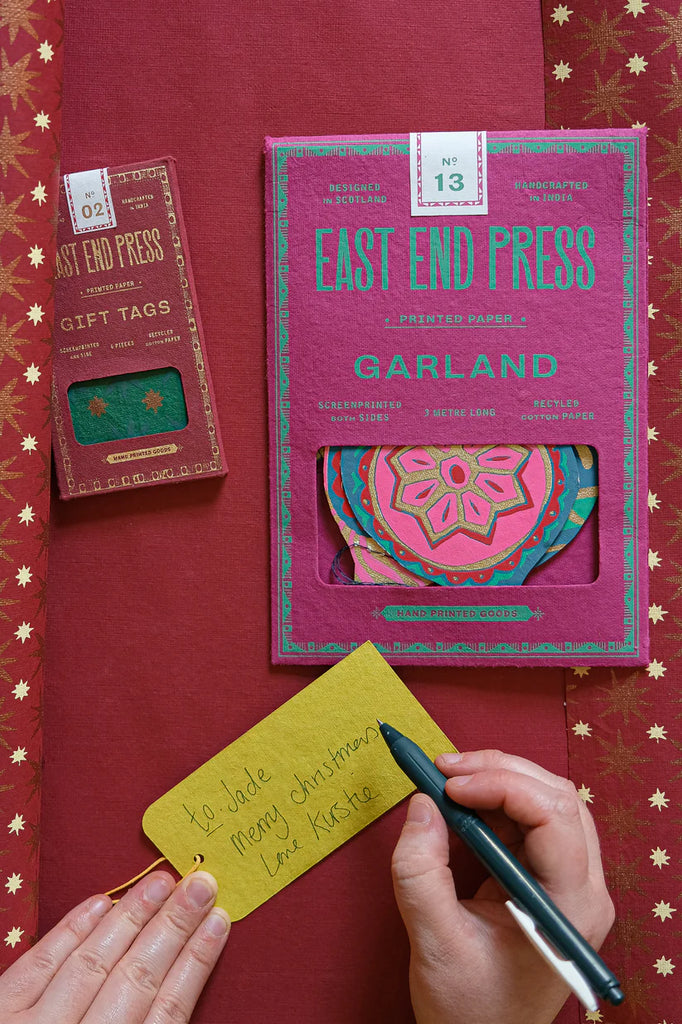 Nº
02
HANDCRAFTED
IN INDIA
AST END PRESS
PRINTED PAPER
GIFT TAGS
SCREENPRINTED
ONE SIDE
6 PIECES
RECYCLED
COTTON PAPER
HAND PRINTED GOODS
Nº
13
DESIGNED
IN SCOTLAND
HANDCRAFTED
IN INDIA
EAST END PRESS
PRINTED PAPER
GARLAND
SCREENPRINTED
BOTH SIDES
3 METRE LONG
RECYLED
COTTON PAPER
HAND PRINTED GOODS
to. Jade
merry christmas
Love Kirstie